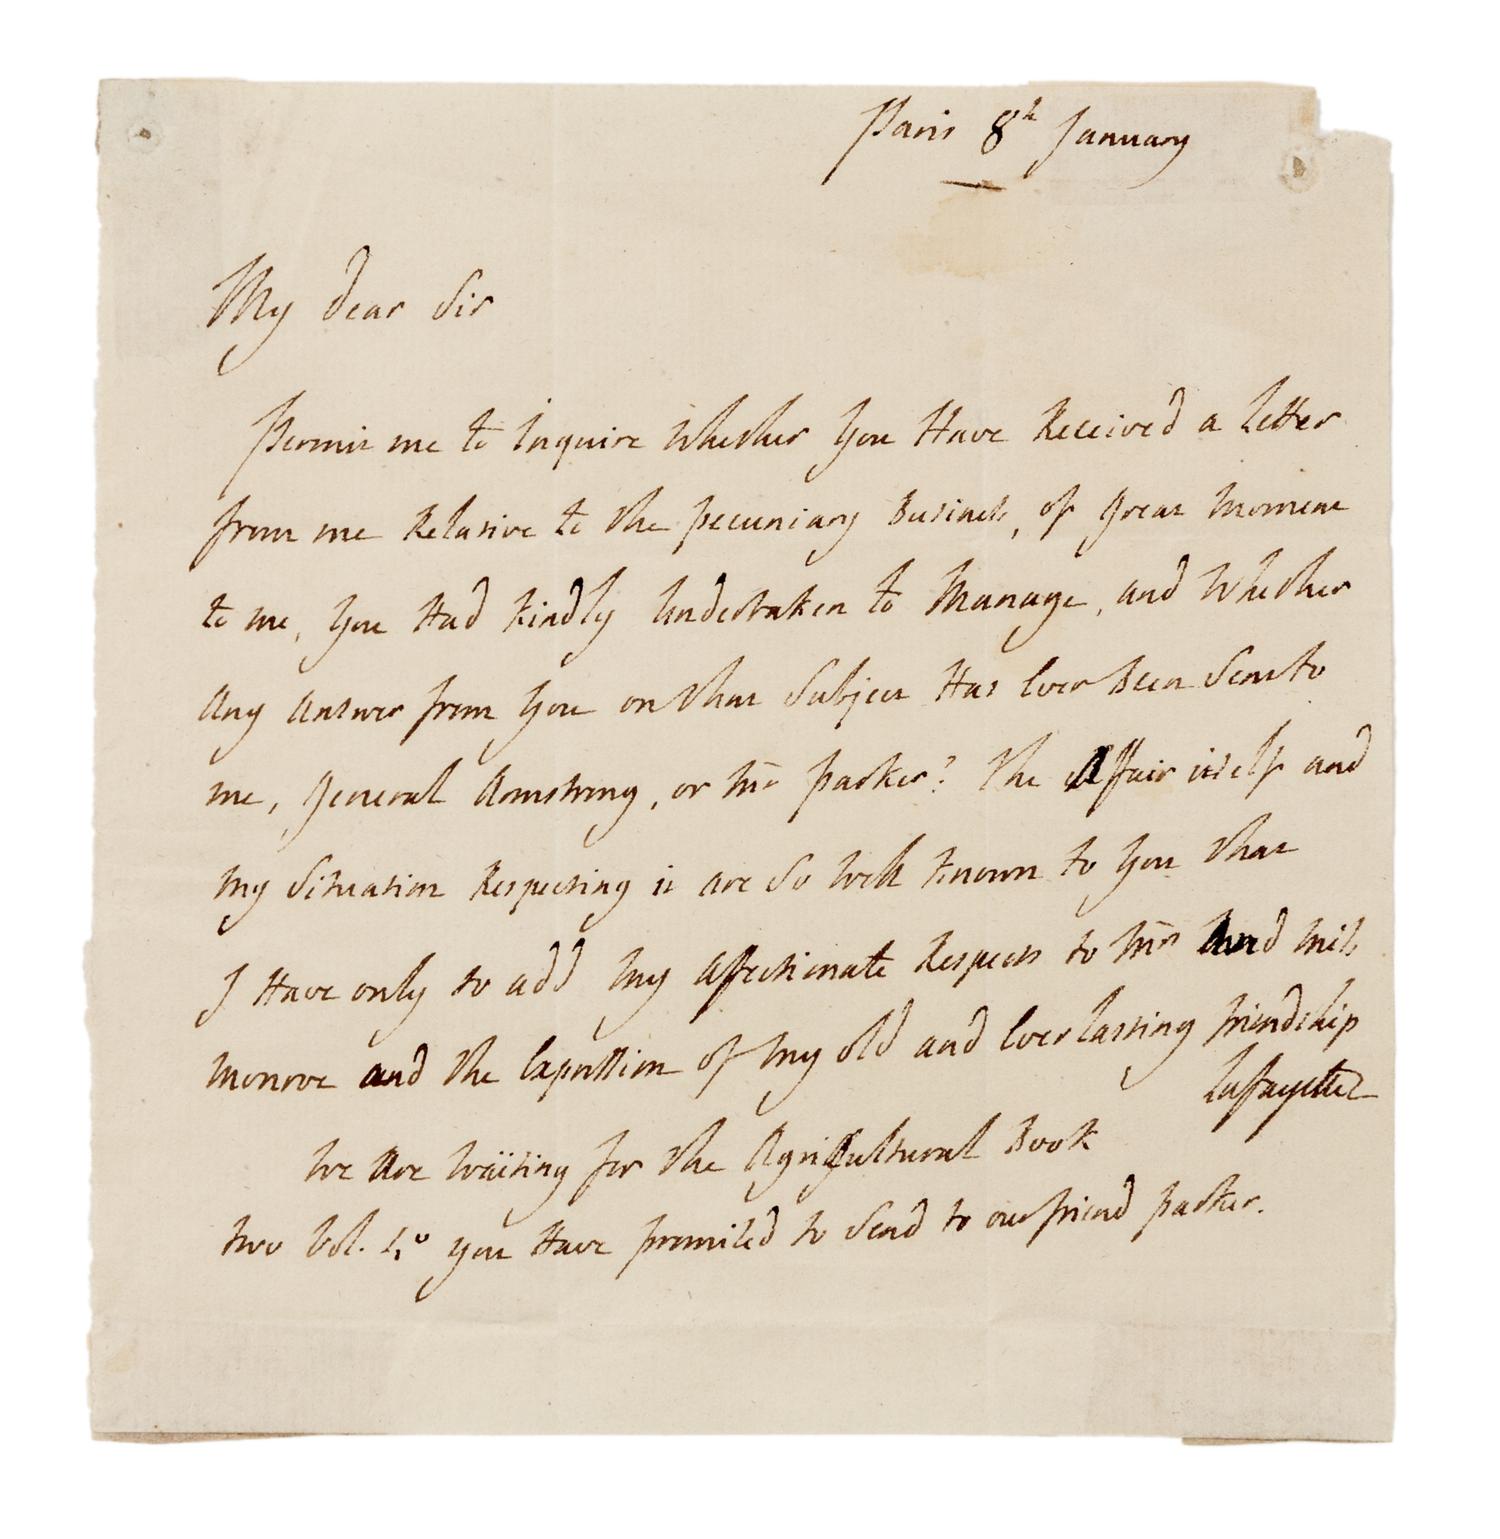 Paris 8h January
My dear Sir
Permit me to Inquire Whether You Have Received a Letter
from me Relative to the pecuniary Business, of Great Moment
to me, You Had Kindly Undertaken to Manage, and Whether
Any Answer from You on that Subject Has Ever Been Sent to
me, General Armstrong, or Mr parker? The Affair itself and
My Situation Respecting it are So Well Known to You that
I Have only to add My Affectionate Respects to Mrs And Miss
Monroe and the Expression of My old and Everlasting friendship
Lafayette
We Are Waïting for the Agricultural Book
two Vol. 4o you Have promised to Send to our friend parker.